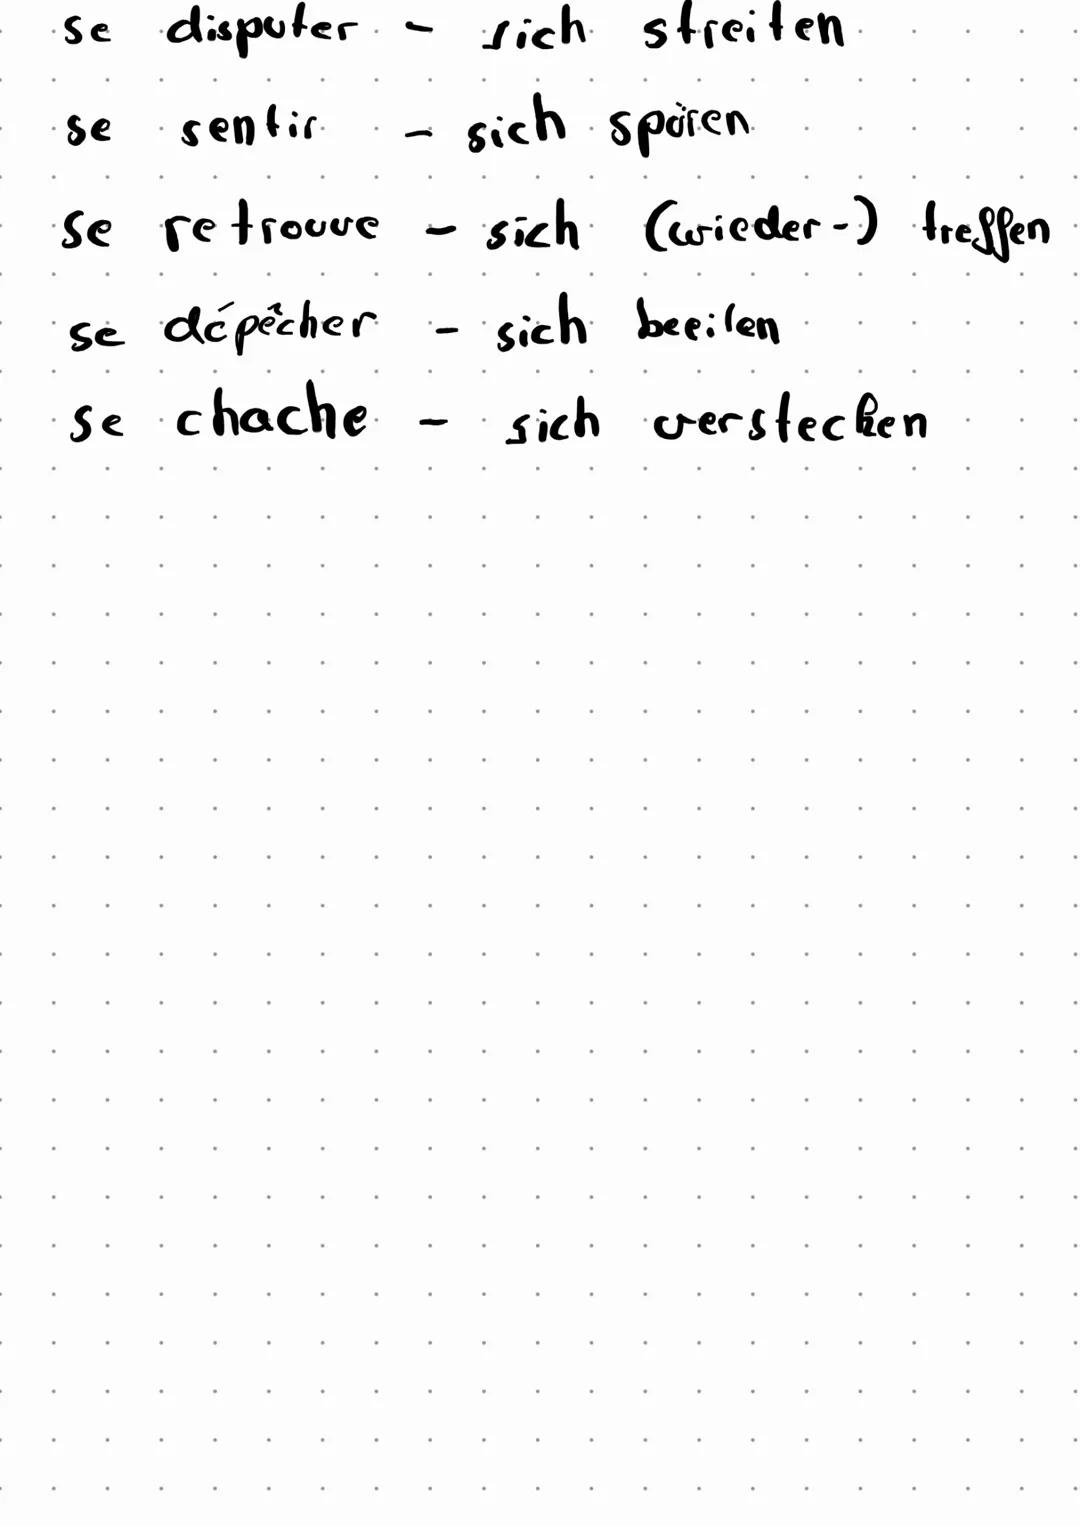 se disputer - sich streiten
se sentir - sich spüren
se retrouve - sich (wieder-) treffen
se dépêcher - sich beeilen
se chache - sich verstecken